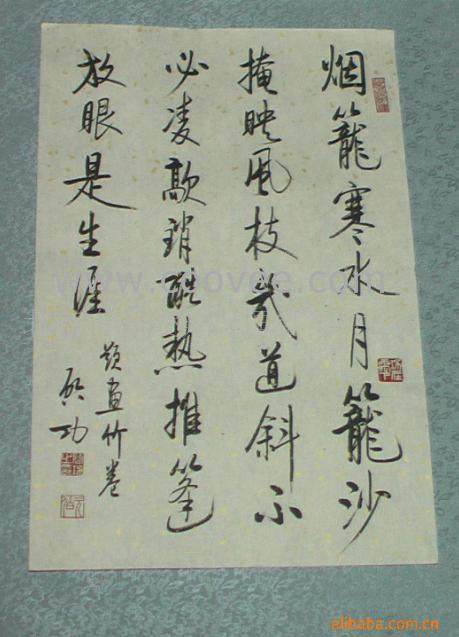 烟籠寒水月籠沙
掩映風枝幾道斜不
必凌歊銷酷熱推篷
放眼是生涯
題畫竹卷
啟功
www.coovee.com
alibaba.com.cn